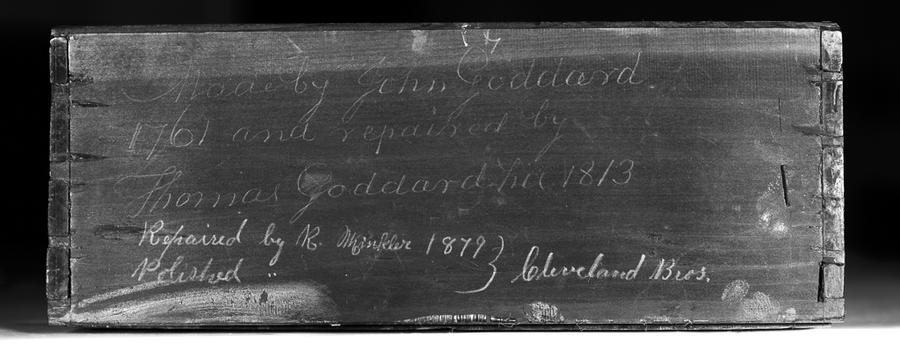 Made by John Goddard
1761 and repaired by
Thomas Goddard 1813
Repaired by R. 1879 } Cleveland Bros.
Polished "